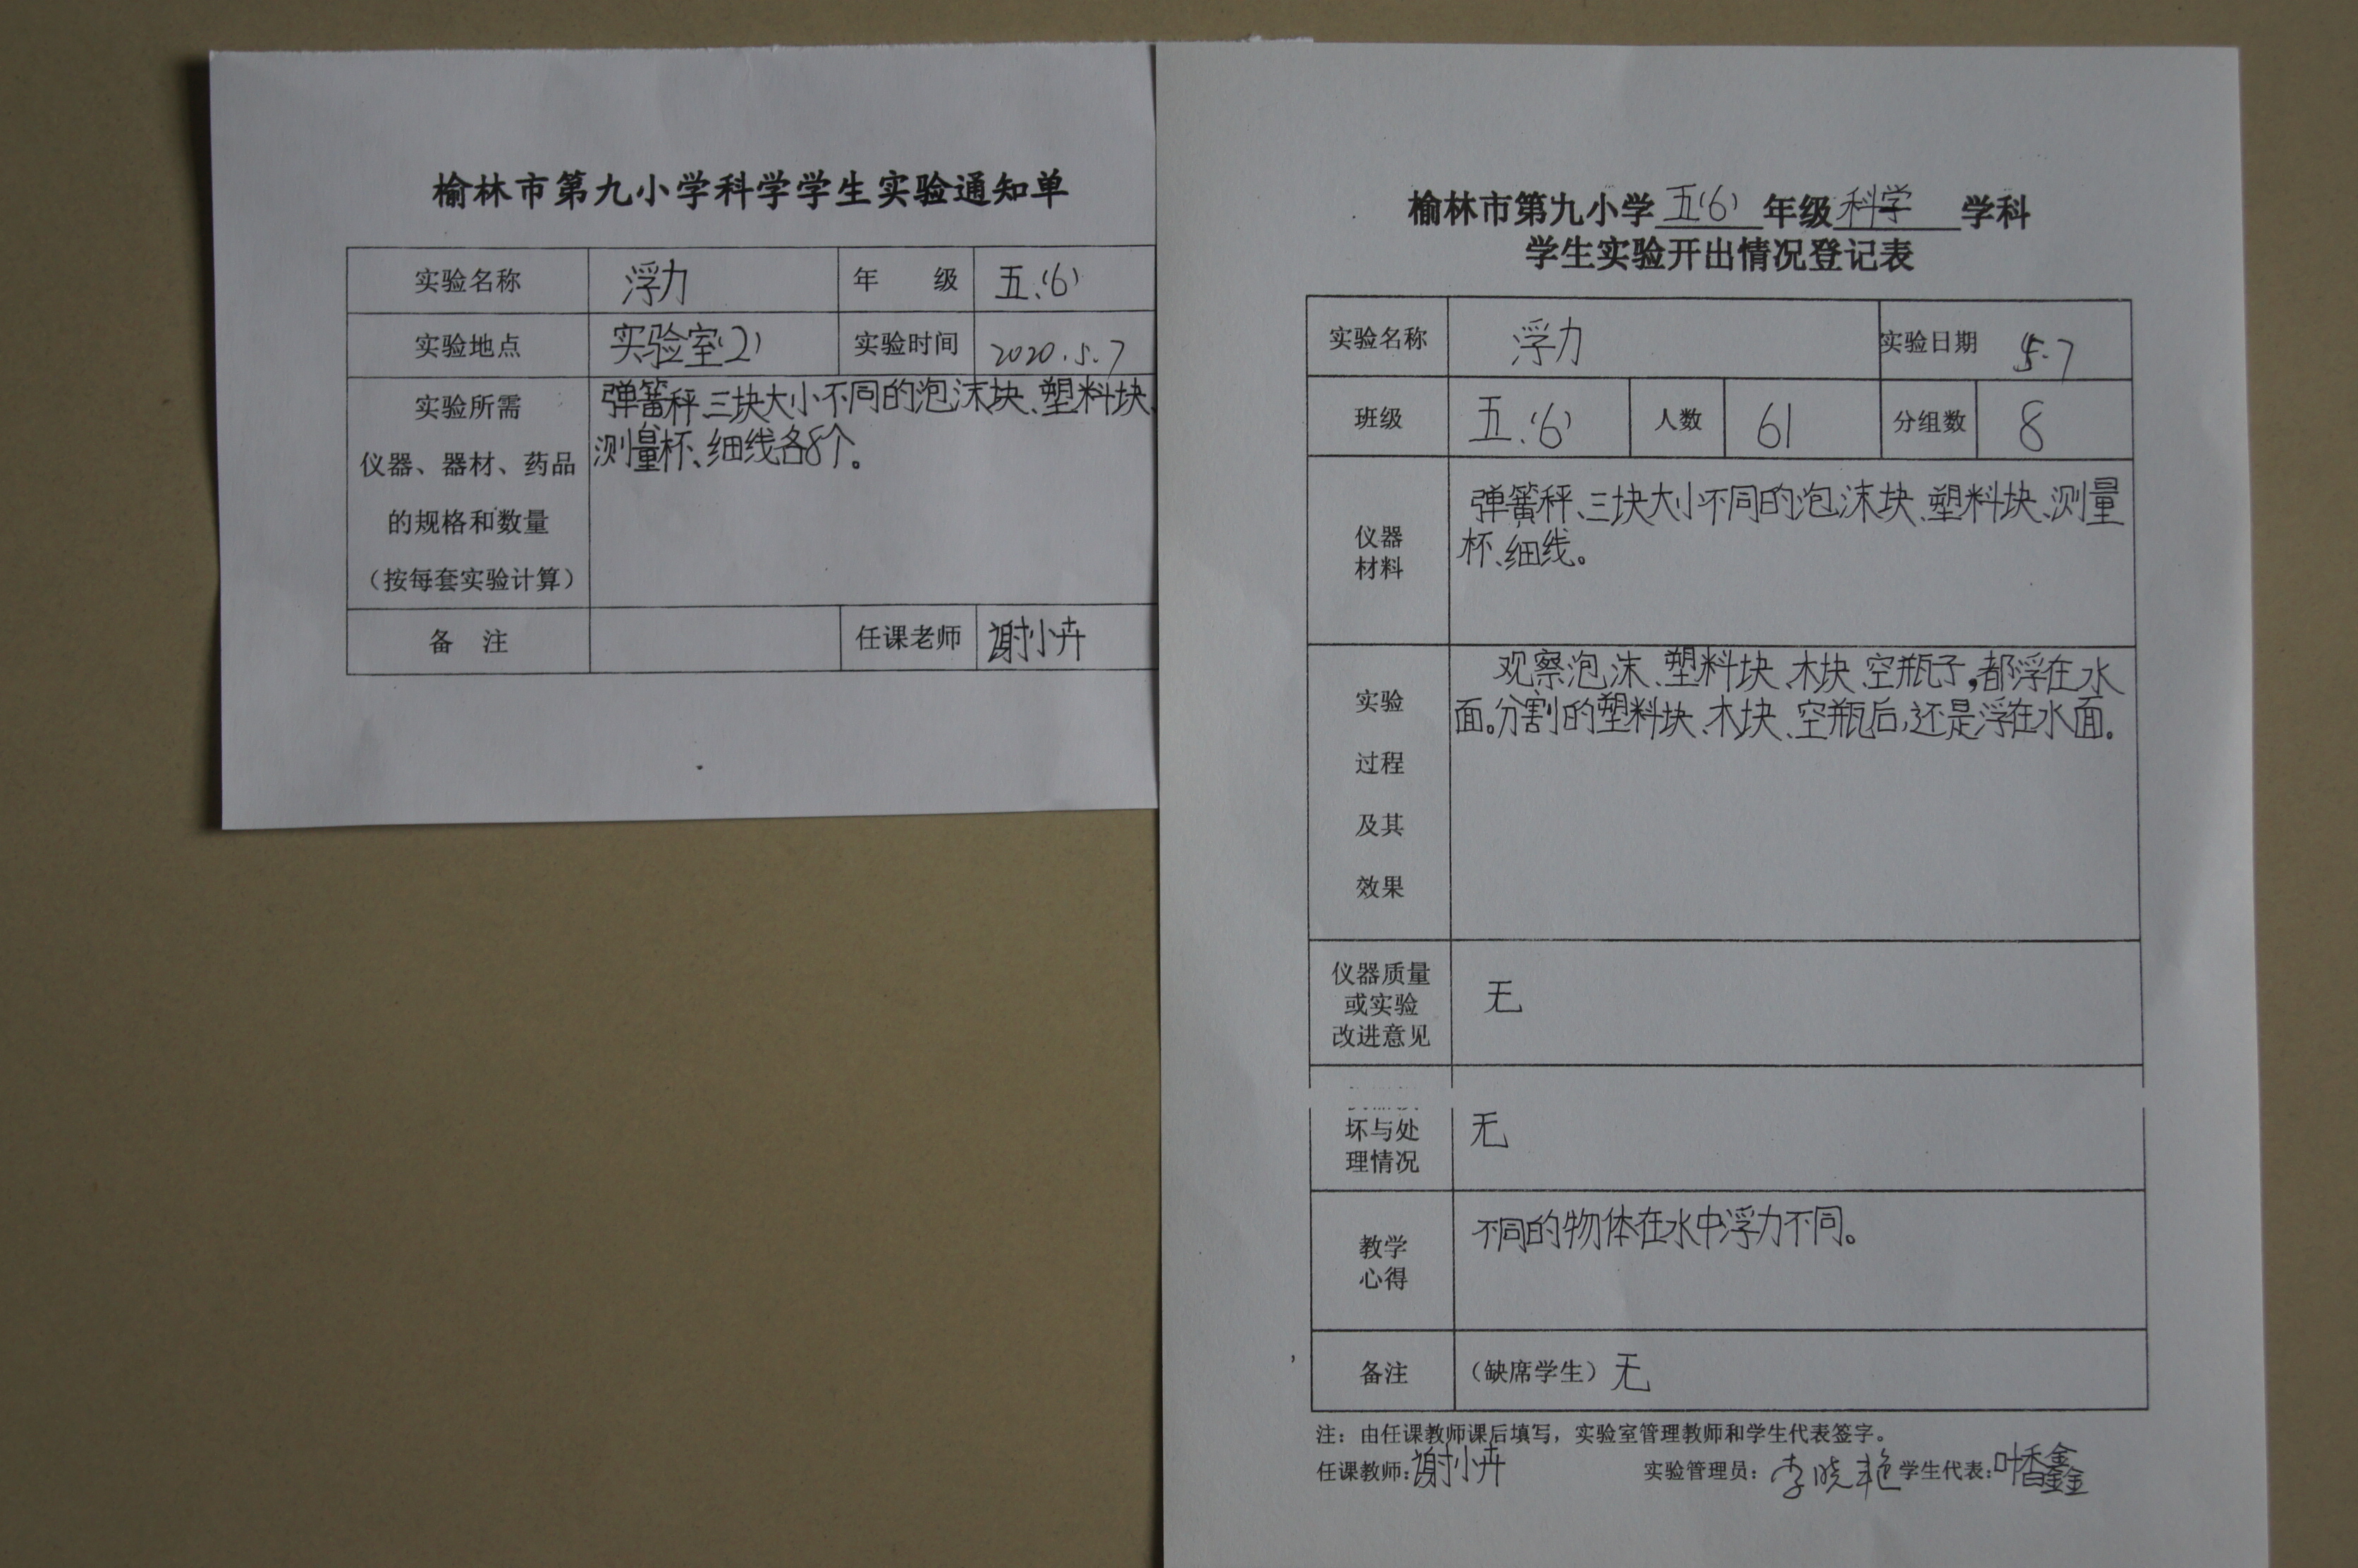 榆林市第九小学科学学生实验通知单
实验名称 浮力 年 级 五.(6)
实验地点 实验室(2) 实验时间 2020.5.7
实验所需
仪器、器材、药品
的规格和数量
（按每套实验计算）
弹簧秤、三块大小不同的泡沫块、塑料块、
测量杯、细线各8个。
备 注 任课老师 谢小卉
榆林市第九小学 五(6) 年级 科学 学科
学生实验开出情况登记表
实验名称 浮力 实验日期 5.7
班级 五.(6) 人数 61 分组数 8
仪器
材料
弹簧秤、三块大小不同的泡沫块、塑料块、测量
杯、细线。
实验
过程
及其
效果
观察泡沫、塑料块、木块、空瓶子，都浮在水
面。分割的塑料块、木块、空瓶后，还是浮在水面。
仪器质量
或实验
改进意见
无
坏与处
理情况
无
教学
心得
不同的物体在水中浮力不同。
备注 （缺席学生）无
注：由任课教师课后填写，实验室管理教师和学生代表签字。
任课教师：谢小卉 实验管理员：李晓艳 学生代表：叶香鑫